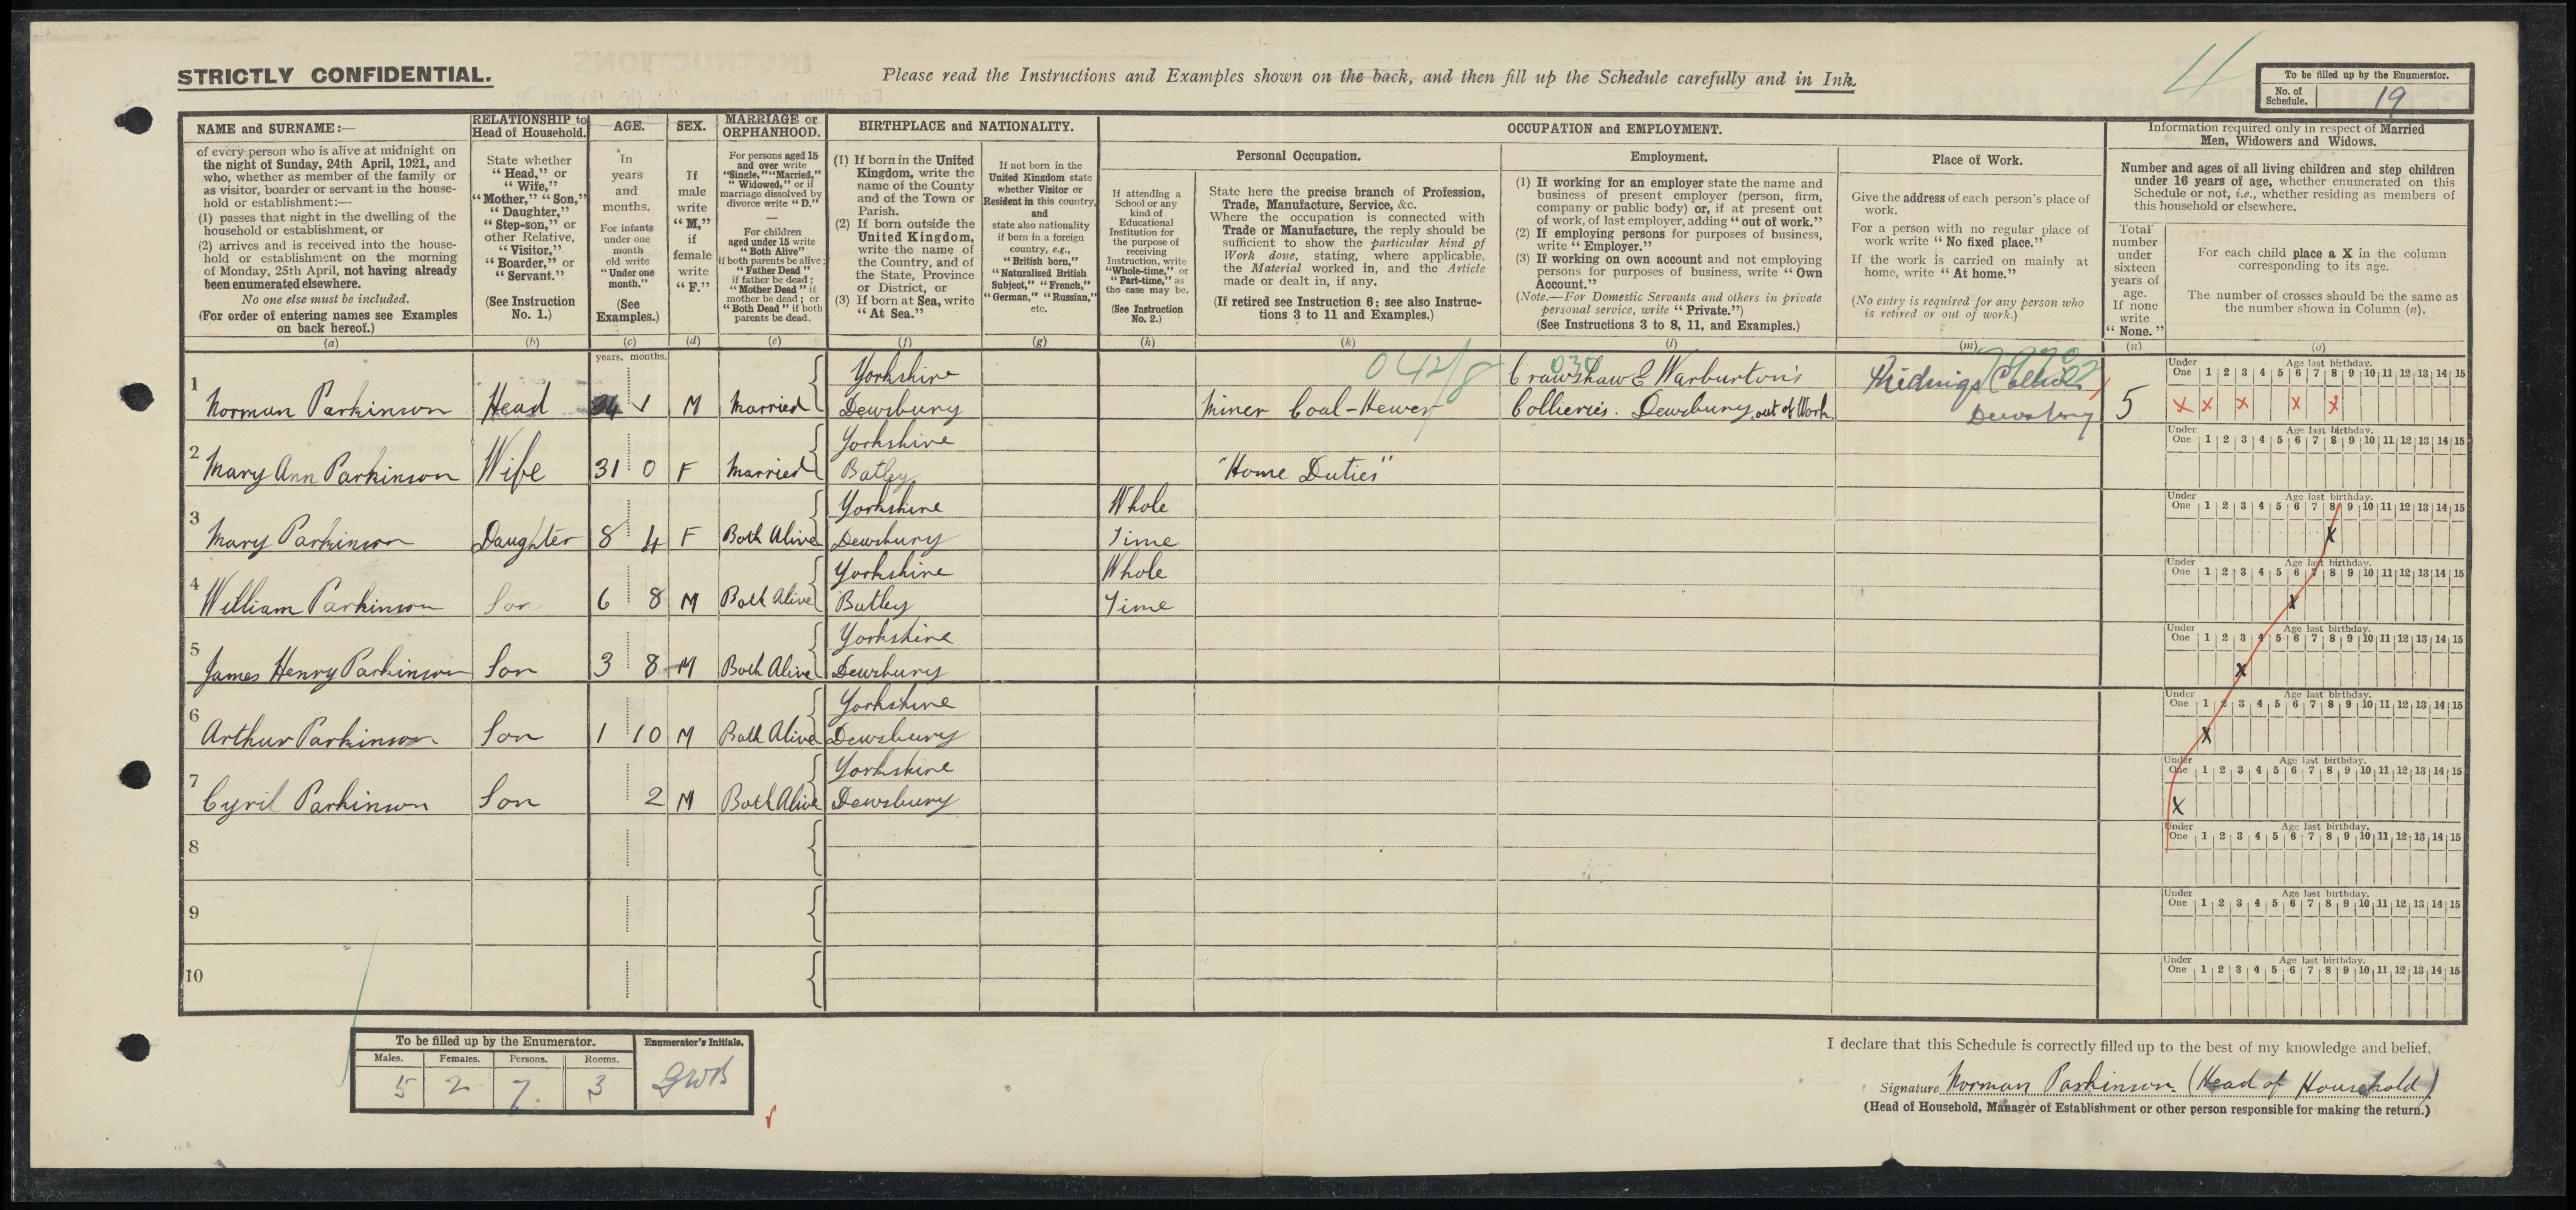 STRICTLY CONFIDENTIAL.
Please read the Instructions and Examples shown on the back, and then fill up the Schedule carefully and in Ink.
4
To be filled up by the Enumerator.
No. of Schedule. 19
NAME and SURNAME:—
of every person who is alive at midnight on
the night of Sunday, 24th April, 1921, and
who, whether as member of the family or
as visitor, boarder or servant in the house-
hold or establishment:—
(1) passes that night in the dwelling of the
household or establishment, or
(2) arrives and is received into the house-
hold or establishment on the morning
of Monday, 25th April, not having already
been enumerated elsewhere.
No one else must be included.
(For order of entering names see Examples
on back hereof.)
(a)
RELATIONSHIP to
Head of Household.
State whether
"Head," or
"Wife,"
"Mother," "Son,"
"Daughter,"
"Step-son," or
other Relative,
"Visitor,"
"Boarder," or
"Servant."
(See Instruction
No. 1.)
(b)
AGE.
In
years
and
months.
For infants
under one
month
old write
"Under one
month."
(See
Examples.)
(c)
SEX.
If
male
write
"M,"
if
female
write
"F."
(d)
MARRIAGE or
ORPHANHOOD.
For persons aged 15
and over write
"Single," "Married,"
"Widowed," or if
marriage dissolved by
divorce write "D."
—
For children
aged under 15 write
"Both Alive"
if both parents be alive;
"Father Dead"
if father be dead;
"Mother Dead" if
mother be dead; or
"Both Dead" if both
parents be dead.
(e)
BIRTHPLACE and NATIONALITY.
(1) If born in the United
Kingdom, write the
name of the County
and of the Town or
Parish.
(2) If born outside the
United Kingdom,
write the name of
the Country, and of
the State, Province
or District, or
(3) If born at Sea, write
"At Sea."
(f)
If not born in the
United Kingdom state
whether Visitor or
Resident in this country,
and
state also nationality
if born in a foreign
country, e.g.,
"British born,"
"Naturalised British
Subject," "French,"
"German," "Russian,"
etc.
(g)
OCCUPATION and EMPLOYMENT.
Personal Occupation.
If attending a
School or any
kind of
Educational
Institution for
the purpose of
receiving
Instruction, write
"Whole-time," or
"Part-time," as
the case may be.
(See Instruction
No. 2.)
(h)
State here the precise branch of Profession,
Trade, Manufacture, Service, &c.
Where the occupation is connected with
Trade or Manufacture, the reply should be
sufficient to show the particular kind of
Work done, stating, where applicable,
the Material worked in, and the Article
made or dealt in, if any.
(If retired see Instruction 6; see also Instruc-
tions 3 to 11 and Examples.)
(k)
Employment.
(1) If working for an employer state the name and
business of present employer (person, firm,
company or public body) or, if at present out
of work, of last employer, adding "out of work."
(2) If employing persons for purposes of business,
write "Employer."
(3) If working on own account and not employing
persons for purposes of business, write "Own
Account."
(Note.—For Domestic Servants and others in private
personal service, write "Private.")
(See Instructions 3 to 8, 11, and Examples.)
(l)
Place of Work.
Give the address of each person's place of
work.
For a person with no regular place of
work write "No fixed place."
If the work is carried on mainly at
home, write "At home."
(No entry is required for any person who
is retired or out of work.)
(m)
Information required only in respect of Married
Men, Widowers and Widows.
Number and ages of all living children and step children
under 16 years of age, whether enumerated on this
Schedule or not, i.e., whether residing as members of
this household or elsewhere.
Total
number
under
sixteen
years of
age.
If none
write
"None."
(n)
For each child place a X in the column
corresponding to its age.
The number of crosses should be the same as
the number shown in Column (n).
(o)
years. months.
Under One Age last birthday. 1 2 3 4 5 6 7 8 9 10 11 12 13 14 15
1 Norman Parkinson Head 34 1 M Married Yorkshire Dewsbury 042/8 Miner Coal-Hewer Crawshaw & Warburton's Collieries. Dewsbury, out of Work. Dewsbury 5 X X X X X
Under One Age last birthday. 1 2 3 4 5 6 7 8 9 10 11 12 13 14 15
2 Mary Ann Parkinson Wife 31 0 F Married Yorkshire Batley "Home Duties"
Under One Age last birthday. 1 2 3 4 5 6 7 8 9 10 11 12 13 14 15
3 Mary Parkinson Daughter 8 4 F Both Alive Yorkshire Dewsbury Whole Time X
Under One Age last birthday. 1 2 3 4 5 6 7 8 9 10 11 12 13 14 15
4 William Parkinson Son 6 8 M Both Alive Yorkshire Batley Whole Time X
Under One Age last birthday. 1 2 3 4 5 6 7 8 9 10 11 12 13 14 15
5 James Henry Parkinson Son 3 8 M Both Alive Yorkshire Dewsbury X
Under One Age last birthday. 1 2 3 4 5 6 7 8 9 10 11 12 13 14 15
6 Arthur Parkinson Son 1 10 M Both Alive Yorkshire Dewsbury X
Under One Age last birthday. 1 2 3 4 5 6 7 8 9 10 11 12 13 14 15
7 Cyril Parkinson Son 2 M Both Alive Yorkshire Dewsbury X
Under One Age last birthday. 1 2 3 4 5 6 7 8 9 10 11 12 13 14 15
8
Under One Age last birthday. 1 2 3 4 5 6 7 8 9 10 11 12 13 14 15
9
Under One Age last birthday. 1 2 3 4 5 6 7 8 9 10 11 12 13 14 15
10
To be filled up by the Enumerator.
Males. Females. Persons. Rooms.
5 2 7. 3
Enumerator's Initials.
GWB
I declare that this Schedule is correctly filled up to the best of my knowledge and belief.
Signature Norman Parkinson. (Head of Household)
(Head of Household, Manager of Establishment or other person responsible for making the return.)